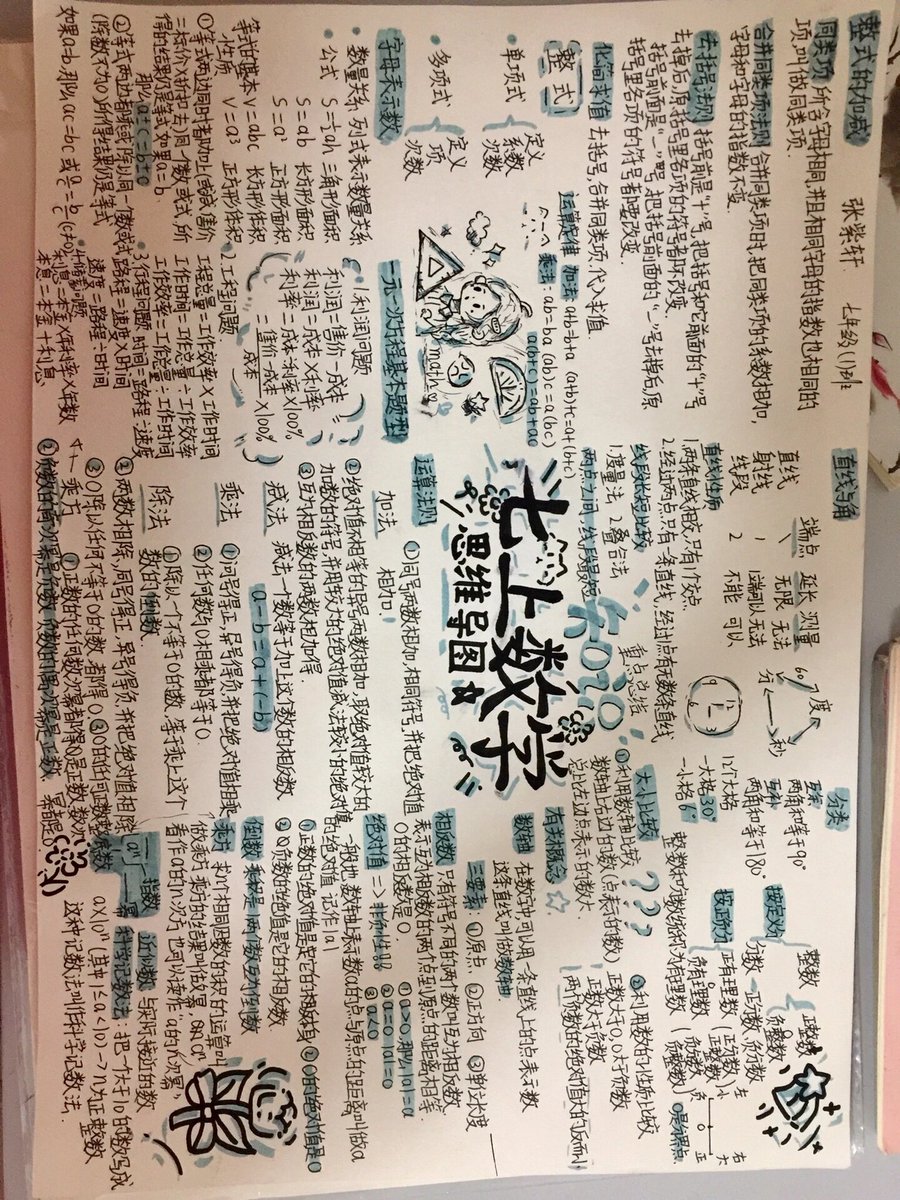 张紫轩 七年级(1)班
整式的加减
同类项 所含字母相同,并且相同字母的指数也相同的
项,叫做同类项.
合并同类项法则 合并同类项时,把同类项的系数相加,
字母和字母的指数不变.
去括号法则 括号前是"+"号,把括号和它前面的"+"号
去掉后,原括号里各项的符号都不改变.
括号前面是"-"号,把括号前面的"-"号去掉后,原
括号里各项的符号都要改变.
化简求值 去括号,合并同类项,代入求值.
整式
单项式 定义 系数 次数
多项式 定义 项 次数
运算定律 加法:a+b=b+a (a+b)+c=a+(b+c)
乘法:ab=ba (ab)c=a(bc)
a(b+c)=ab+ac
math
字母表示数
数量关系 列式表示数量关系
公式 三角形面积
S=ab 长方形面积
S=a² 正方形面积
V=abc 长方形体积
V=a³ 正方形体积
等式的基本性质
一元一次方程基本题型
利润问题
利润=售价-成本
利润=成本×利率
2.工程问题
工程总量=工作效率×工作时间
工作时间=工作总量÷工作效率
工作效率=工作总量÷工作时间
3.行程问题 时间=路程÷速度
路程=速度×时间
速度=路程÷时间
本息=本金+利息
直线与角
端点 延长 测量
直线 无限 无法
射线 1 1端可以 无法
线段 2 不能 可以
直线性质
1.两条直线相交,只有1个交点.
2.经过两点,只有一条直线,经过1点有无数条直线
线段长短比较
1.度量法 2.叠合法
两点之间,线段最短
度
分
秒
60
12个大格
一大格30°
分类
互余 两角和等于90°
互补 两角和等于180°
七上数学
思维导图
重点总结
运算法则
加法 ①同号两数相加,相同符号,并把绝对值
相加
②绝对值不相等的异号两数相加,取绝对值较大的
加数的符号,并用较大的绝对值减法较小的绝对值
③互为相反数的两数相加得0.
减法 减去一个数等于加上这个数的相反数
a-b=a+(-b)
乘法 ①同号得正,异号得负,并把绝对值相乘
②任何数与0相乘都等于0.
除法 ①除以一个不等于0的数,等于乘上这个
数的倒数
②两数相除,同号得正,异号得负,并把绝对值相除
③0除以任何不等于0的数,都得0
乘方
整数和分数统称为有理数
按定义分
整数 正整数 0 负整数
分数 正分数 负分数
按正负分
正有理数(正分数)(正整数)
0
负有理数(负分数)(负整数)
0是分界点
左 小 负 0 右 大 正
大小比较
①利用数轴比较
数轴上右边的数(点表示的数)
总比左边点表示的数大.
②利用数的性质比较
正数大于0,0大于负数
正数大于负数
两个负数的绝对值大的反而小
有关概念
数轴 在数学中可以用一条直线上的点表示数
这条直线叫做数轴.
三要素:①原点 ②正方向 ③单位长度
相反数 只有符号不同的两个数叫互为相反数
表示互为相反数的两个点到原点的距离相等
0的相反数是0.
绝对值 => 非负性!!!
①a>0,那么|a|=a
②a=0 |a|=0
③a<0
一般地,数轴上表示数a的点与原点的距离叫做a
的绝对值,记作|a|
①正数的绝对值是它的本身 ②0的绝对值是0
③负数的绝对值是它的相反数
倒数 乘积是1两个数互为倒数
乘方 求n个相同因数的积的运算叫
做乘方,乘方的结果叫做幂,
看作a的n次方,也可以读作"a的n次幂"
指数
幂
近似数 与实际接近的数
科学记数法:把一个大于10的数写成
a×10ⁿ(其中1≤a<10)→n为正整数
这种记数法叫作科学记数法.